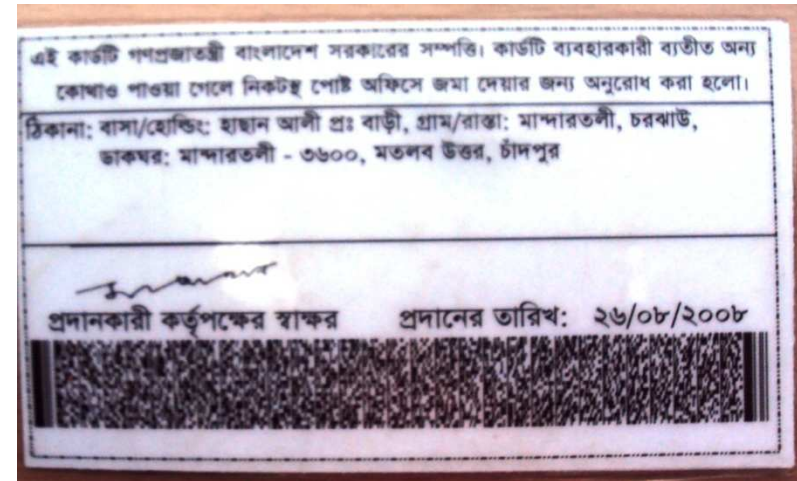 এই কার্ডটি গণপ্রজাতন্ত্রী বাংলাদেশ সরকারের সম্পত্তি। কার্ডটি ব্যবহারকারী ব্যতীত অন্য
কোথাও পাওয়া গেলে নিকটস্থ পোষ্ট অফিসে জমা দেয়ার জন্য অনুরোধ করা হলো।
ঠিকানা: বাসা/হোল্ডিং: হাছান আলী প্রঃ বাড়ী, গ্রাম/রাস্তা: মান্দারতলী, চরঝাউ,
ডাকঘর: মান্দারতলী - ৩৬০০, মতলব উত্তর, চাঁদপুর
প্রদানকারী কর্তৃপক্ষের স্বাক্ষর প্রদানের তারিখ: ২৬/০৮/২০০৮